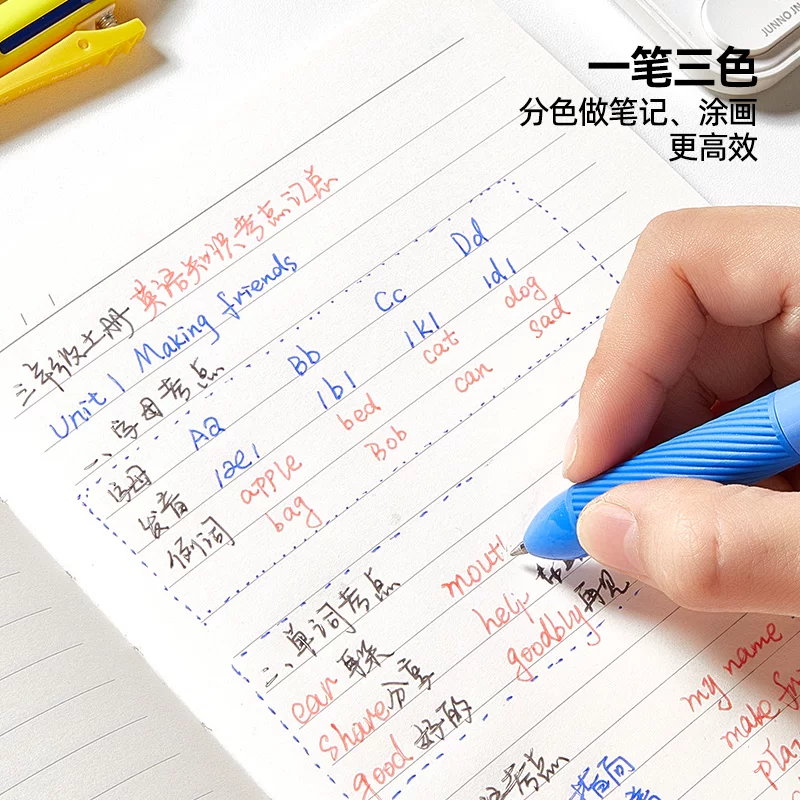 一笔三色
分色做笔记、涂画
更高效
JUNNO JN
三年级上册 英语知识考点汇总
Unit 1 Making friends
一、字母考点
字母 Aa Bb Cc Dd
发音 /æ/ /b/ /k/ /d/
例词 apple bed cat dog
bag Bob can sad
二、单词考点
ear 耳朵 mout
share 分享 help
good 好的 goodbly 再见
考点
my name
make fri
play